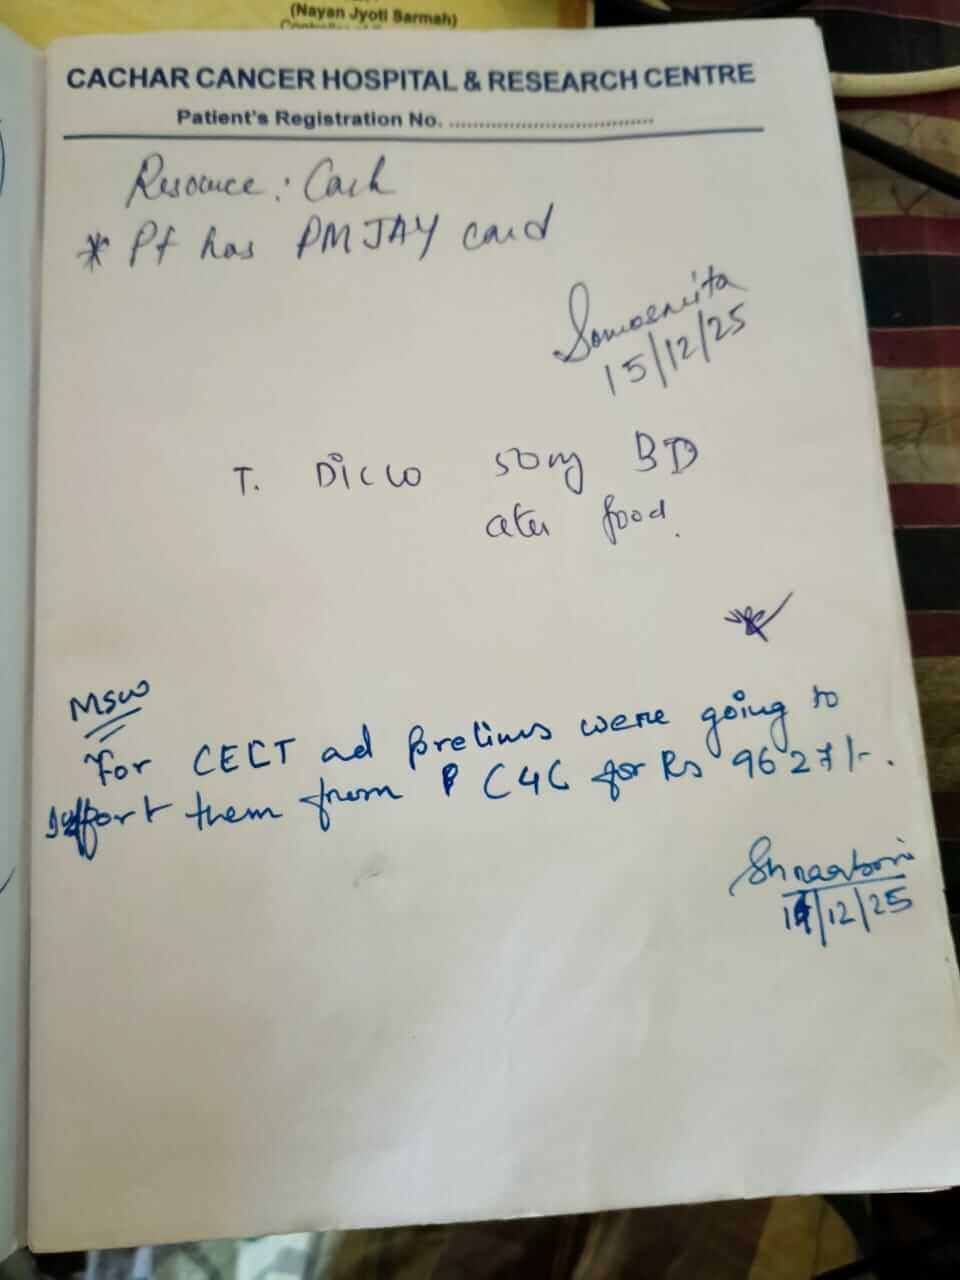 (Nayan Jyoti Sarmah)
CACHAR CANCER HOSPITAL & RESEARCH CENTRE
Patient's Registration No. ..................................
Resource : Cash
* Pt has PMJAY card
15/12/25
T. Diclo 50mg BD
after food.
MSW
For CECT ad prelims were going to
support them from C4C for Rs 9627/-.
/12/25